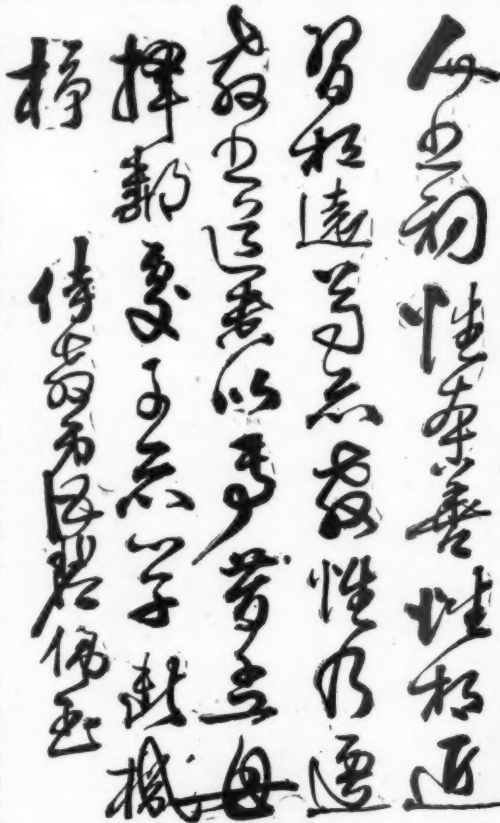 人之初性本善性相近
習相遠苟不教性乃遷
教之道貴以專昔孟母
擇鄰處子不學斷機
杼